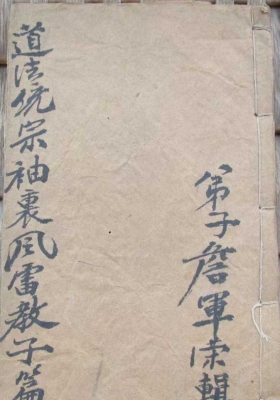 弟子詹軍輯
道法统宗袖裏风雷教子篇